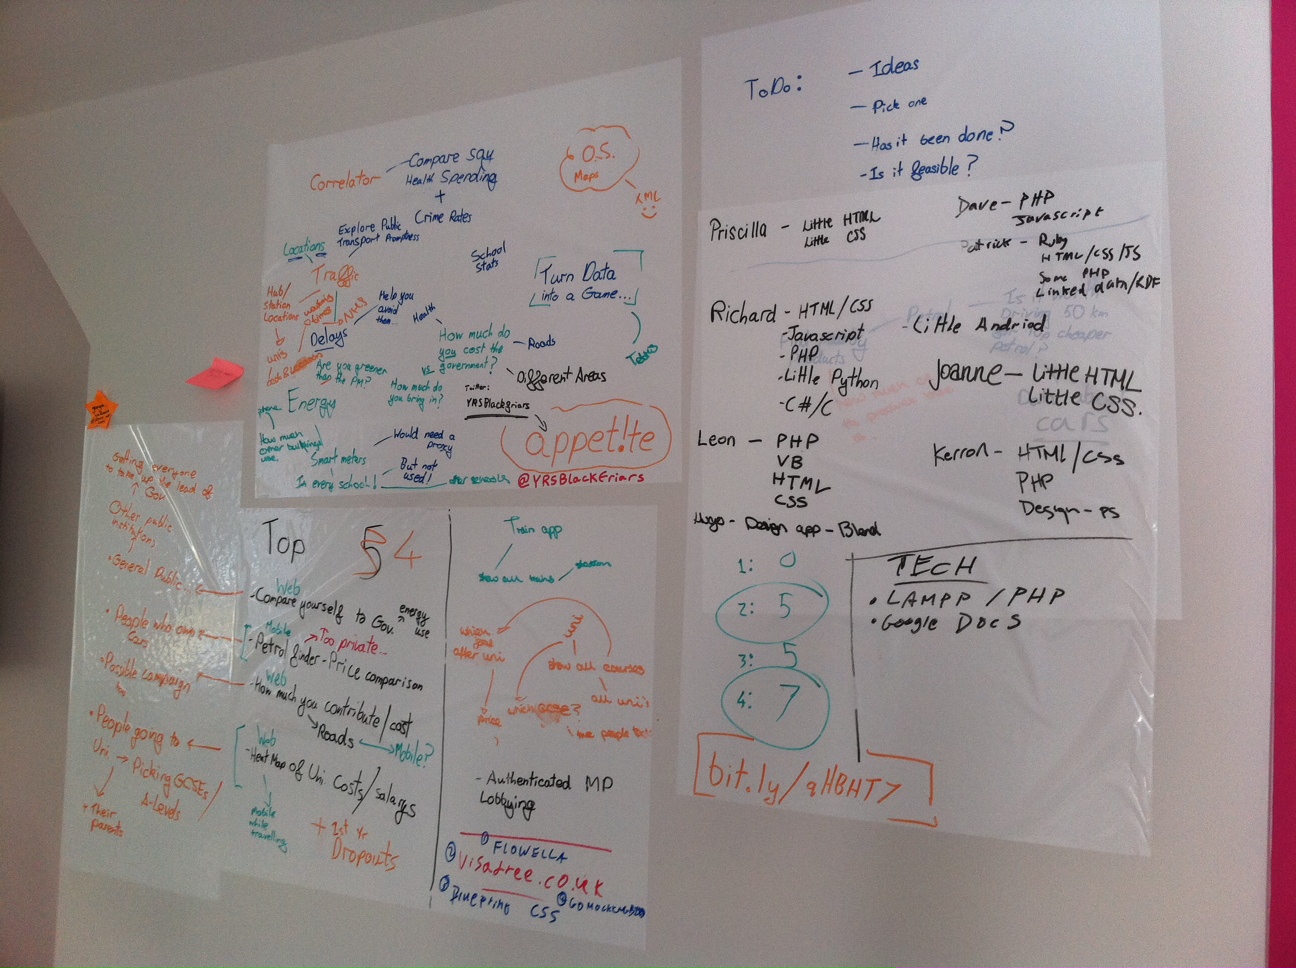 ToDo:
- Ideas
- Pick one
- Has it been done?
- Is it feasible?
Correlator
- Compare say
Health Spending
+
Crime Rates
O.S.
Maps
XML
Explore Public
Transport Promptness
Locations
Traffic
School
Stats
Turn Data
into a Game...
Hub/
Station
Locations
unis
Delays
Help you
avoid
them...
Health
How much do
you cost the
government?
vs
How much do
you bring in?
- Roads
Different Areas
Tetris
Are you greener
than the PM?
Energy
phone
How much
use
Twitter:
YRSBlackfriars
appet!te
@YRSBlackFriars
Would need a
proxy
Smart meters
But not
used!
In every school!
after schools
Priscilla - Little HTML
Little CSS
Dave - PHP
Javascript
Patrick - Ruby
HTML/CSS/JS
Some PHP
Linked data/RDF
Richard - HTML/CSS
- Javascript
- PHP
- Little Python
- C#/C
- Little Andriod
Joanne - Little HTML
Little CSS.
Leon - PHP
VB
HTML
CSS
Kerron - HTML/CSS
PHP
Design - PS
Hugo - Design app - Blend
1: 0
2: 5
3: 5
4: 7
TECH
• LAMPP / PHP
• Google Docs
bit.ly/qHBHT7
Getting everyone
to take up the lead of
Gov
Other public
institutions
• General Public
• People who own
Cars
• Possible campaign
too
• People going to
Uni → Picking GCSEs/
A-Levels
+ Their
parents
Top 5 4
Web
- Compare yourself to Gov. energy use
Mobile
Too private...
- Petrol finder - Price comparison
Web
- How much you contribute/cost
Roads
Mobile?
Web
- Heat Map of Uni Costs/salarys
Mobile
while
travelling
+ 1st Yr
Dropouts
Train app
show all trains
station
uni
which
after uni
show all courses
all uni's
which GCSE?
price
- Authenticated MP
Lobbying
1 FLOWELLA
2 visatree.co.uk
3 Blueprint CSS